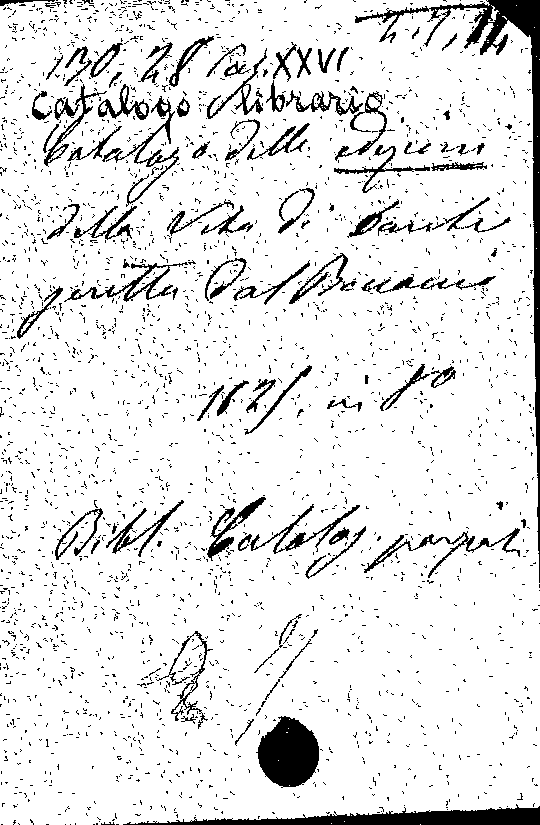 130, 28 Cas. XXVI
catalogo librario
Catalogo delle edizioni
della Vita di Dante
scritta dal Boccaccio
1825. in 8º
Bibl. Catalog.